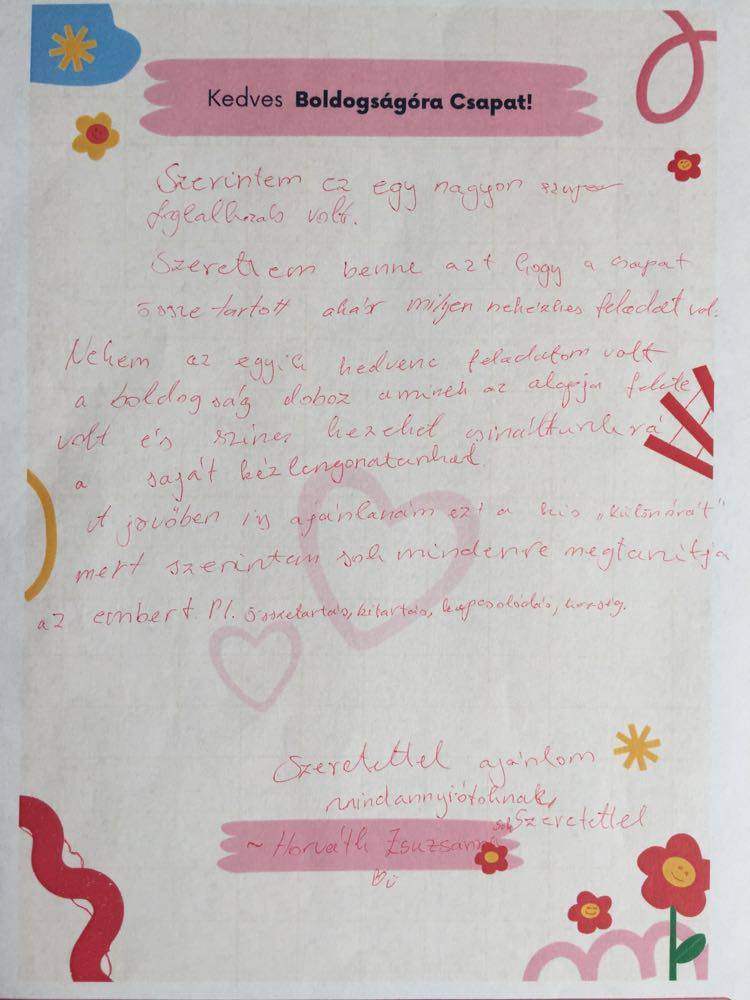 Kedves Boldogságóra Csapat!
Szerintem ez egy nagyon szuper
foglalkozás volt.
Szerettem benne azt hogy a csapat
össze tartott akár milyen nehézkes feladat vol.
Nekem az egyik kedvenc feladatom volt
a boldogság doboz aminek az alapja fekete
volt és színes kezeket csináltunk rá
a saját kézlenyonatunkat.
A jövőben is ajánlanám ezt a kis „különórát"
mert szerintem sok mindenre megtanítja
az embert. Pl. összetartás, kitartás, kapcsolodás, közöség.
Szeretettel ajánlom
mindannyiótoknak,
sok Szeretettel
~ Horváth Zsuzsanna